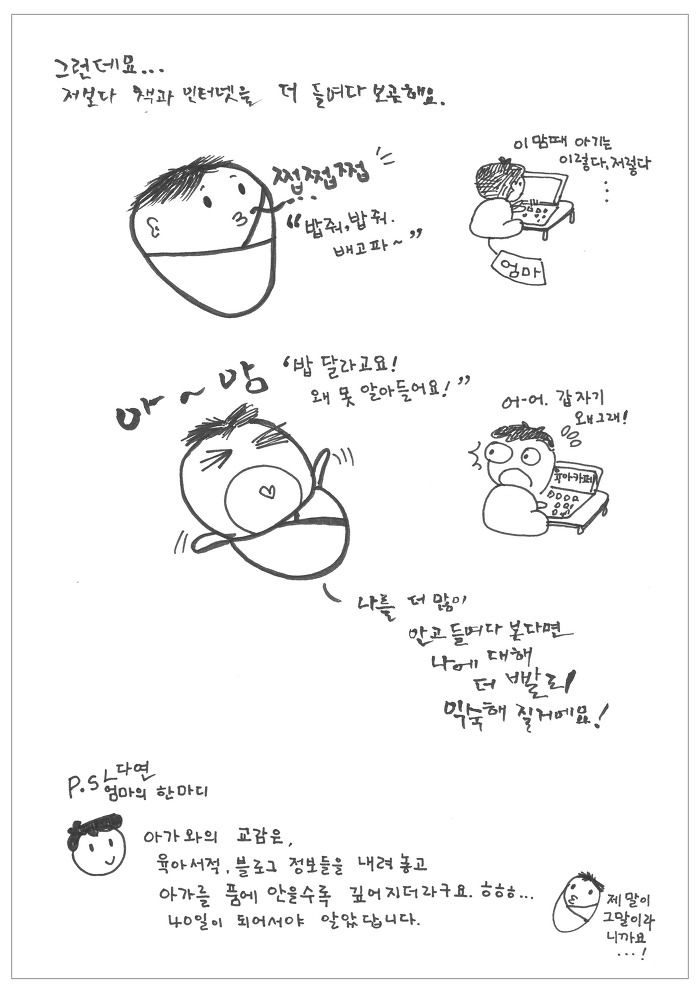 그런데요...
저보다 책과 인터넷을 더 들여다 보곤해요.
쩝쩝쩝
"밥줘, 밥줘.
배고파~"
이 맘때 아기는
이렇다, 저렇다
...
엄마
아~앙
"밥 달라고요!
왜 못 알아들어요!"
어-어. 갑자기
왜그래!
육아카페
나를 더 많이
안고 들여다 본다면
나에 대해
더 빨리
익숙해 질거예요!
P.S 다연
엄마의 한마디
아가와의 교감은,
육아서적, 블로그 정보들을 내려놓고
아가를 품에 안을수록 깊어지더라구요. ㅎㅎㅎ...
40일이 되어서야 알았답니다.
제 말이
그말이라
니까요
...!